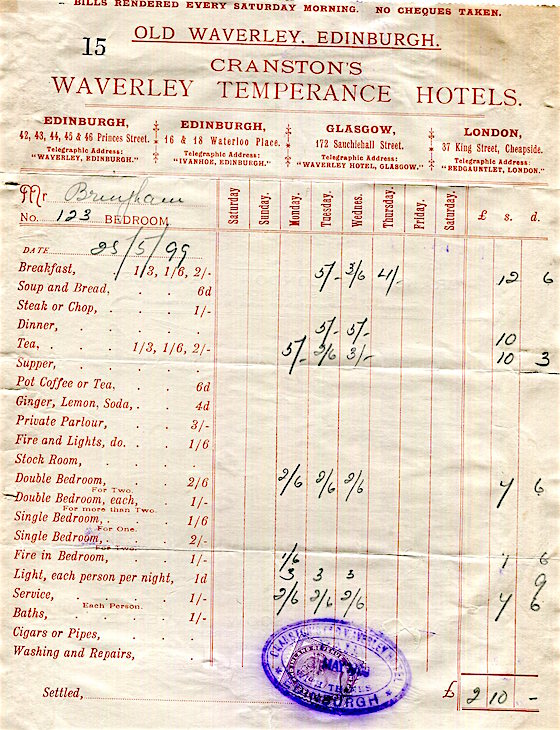 BILLS RENDERED EVERY SATURDAY MORNING. NO CHEQUES TAKEN.
15
OLD WAVERLEY, EDINBURGH.
CRANSTON'S
WAVERLEY TEMPERANCE HOTELS.
EDINBURGH, EDINBURGH, GLASGOW, LONDON,
42, 43, 44, 45 & 46 Princes Street. 16 & 18 Waterloo Place. 172 Sauchiehall Street. 37 King Street, Cheapside.
Telegraphic Address: Telegraphic Address: Telegraphic Address: Telegraphic Address:
"WAVERLEY, EDINBURGH." "IVANHOE, EDINBURGH." "WAVERLEY HOTEL, GLASGOW." "REDGAUNTLET, LONDON."
Mr
No. 123 BEDROOM. Saturday Sunday. Monday. Tuesday. Wednes. Thursday. Friday. Saturday. £ s. d.
DATE 25/5/99
Breakfast, 1/3, 1/6, 2/- 5/- 3/6 4/- 12 6
Soup and Bread, . . 6d
Steak or Chop, . . 1/-
Dinner, . . . 5/- 5/- 10
Tea, . . 1/3, 1/6, 2/- 5/- 2/6 3/- 10 3
Supper, . . .
Pot Coffee or Tea, . 6d
Ginger, Lemon, Soda, . . 4d
Private Parlour, . . 3/-
Fire and Lights, do. . . 1/6
Stock Room, . . .
Double Bedroom, . . 2/6 2/6 2/6 2/6 7 6
For Two.
Double Bedroom, each, . 1/-
For more than Two.
Single Bedroom, . . . 1/6
For One.
Single Bedroom, . . . 2/-
For Two.
Fire in Bedroom, . . 1/- 1/6 1 6
Light, each person per night, 1d 3 3 3 9
Service, . . . 1/- 2/6 2/6 2/6 7 6
Each Person.
Baths, . . . 1/-
Cigars or Pipes, . .
Washing and Repairs, .
MAY
EDINBURGH
Settled, . . . . . £ 2 10 -